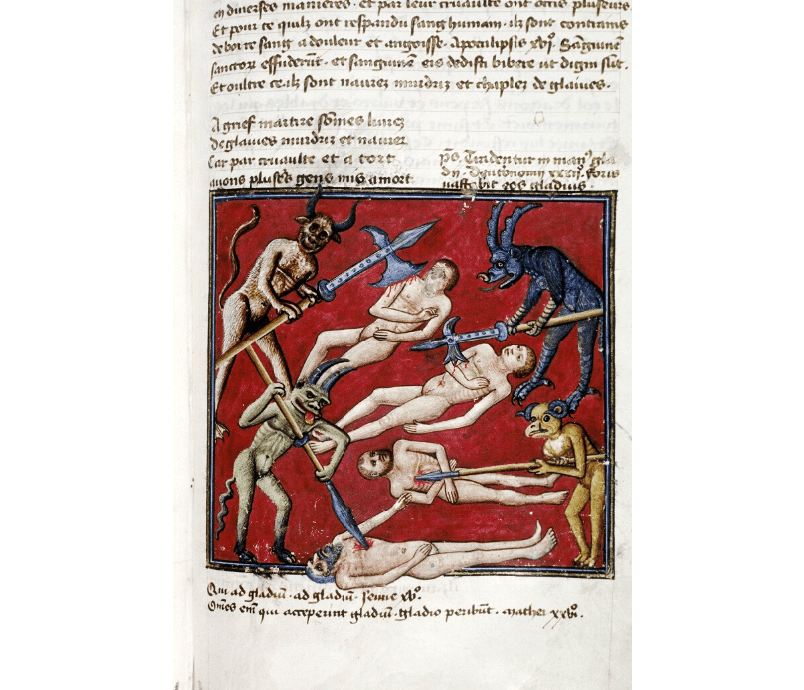 en diverses manieres · et par leur cruaulte ont occis pluseurs
Et pour ce quilz ont respandu sang humain · ilz sont contrains
de boire sang a douleur et angoisse · Apocalipsis xvjº. Sanguinem
sanctorum effuderunt · et sanguinem eis dedisti bibere ut digni sunt.
Et oultre ce ilz sont naurez murdriz et chaplez de glaiues.
A grief martire sommes liurez
de glaiues murdriz et naurez
Car par cruaulte et a tort
auons pluses gens mis a mort
ps. Tradentur in manus gla
dii. Deutronomij xxxij. foris
vastabit eos gladius.
Qui ad gladium · ad gladium · Jeremie xvº.
Omnes enim qui acceperint gladium · gladio peribunt. Mathei xxvjº.